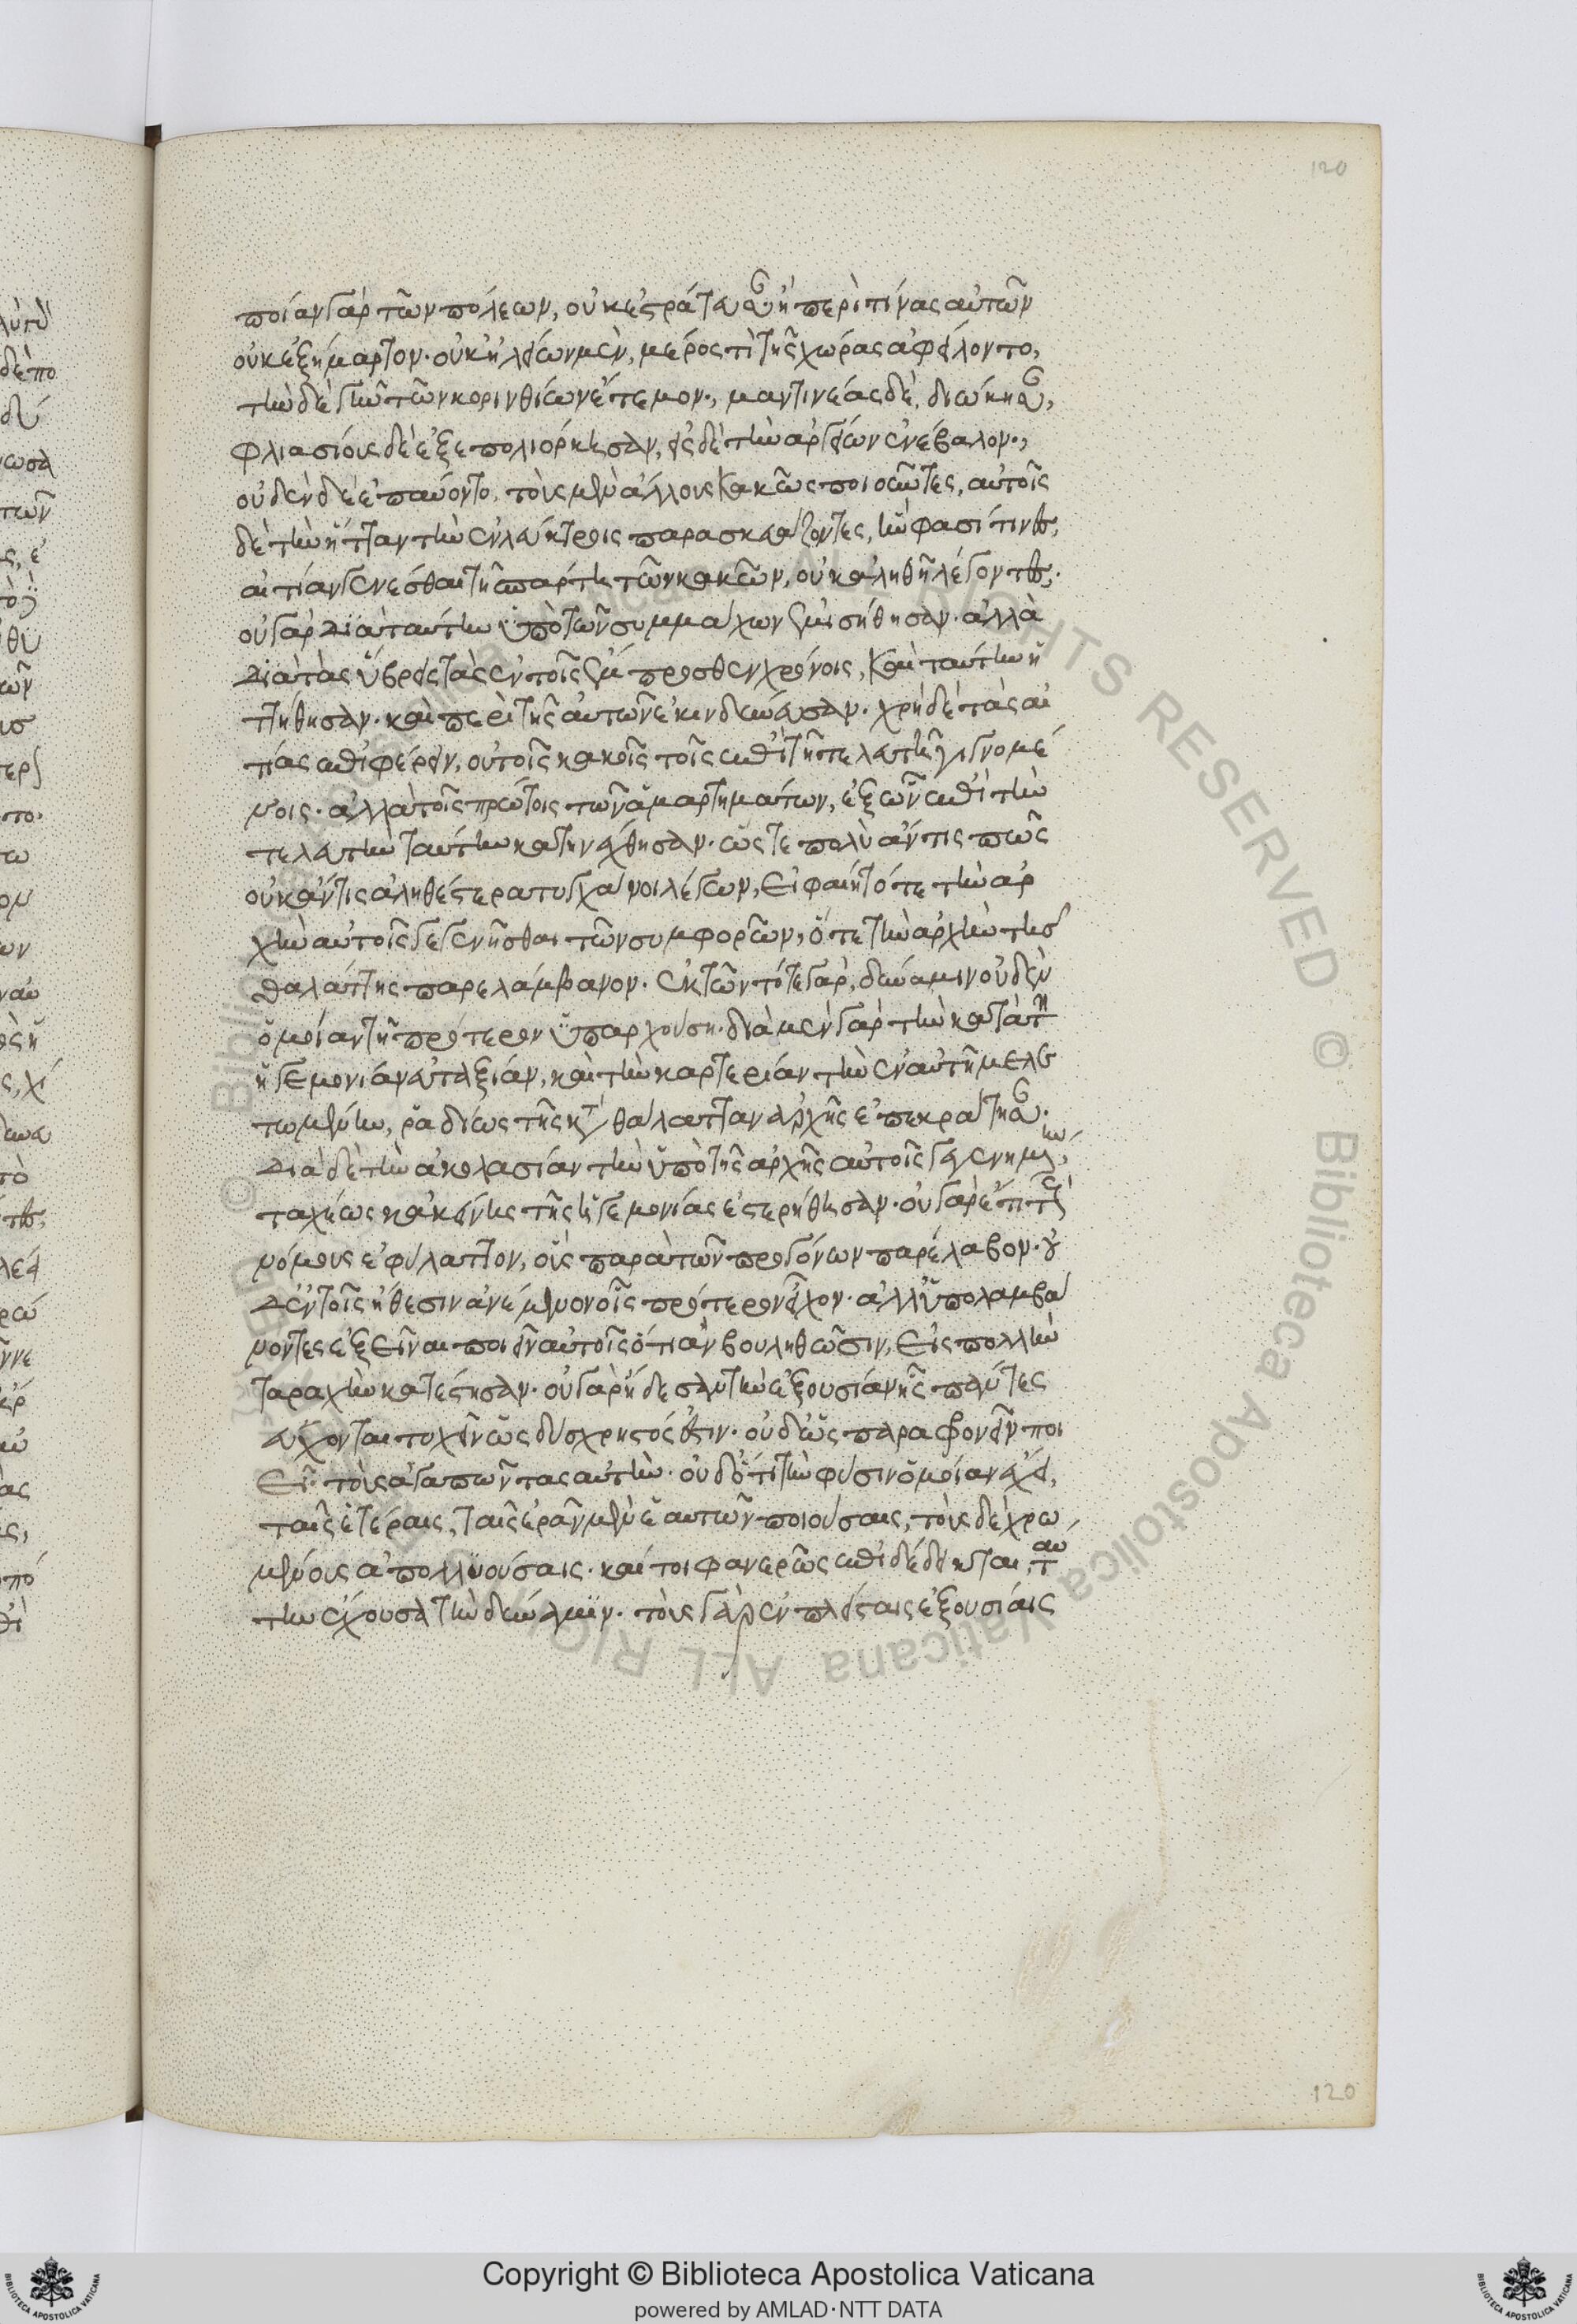 ποίαν γὰρ τῶν πόλεων, οὐκ ἐστράτευσαν ἢ περὶ τίνας αὐτῶν
οὐκ ἐξήμαρτον· οὐκ ἠλείων μὲν, μέρος τὶ τῆς χώρας ἀφείλοντο,
τὴν δὲ γῆν τῶν κορινθίων ἔτεμον·, μαντινέας δὲ, διώκησαν,
φλιασίους δὲ ἐξεπολιόρκησαν, εἰς δὲ τὴν ἀργείων ἐνέβαλον·,
οὐδὲν δὲ ἐπαύοντο, τοὺς μὲν ἄλλους κακῶς ποιοῦντες, αὐτοῖς
δὲ τὴν ἧτταν τὴν ἐν λεύκτροις παρασκευάζοντες, ἥν φασί τινες,
αἰτίαν γενέσθαι τῇ σπάρτῃ τῶν κακῶν, οὐκ ἀληθῆ λέγοντες·
οὐ γὰρ διὰ ταύτην ὑπὸ τῶν συμμάχων ἐμισήθησαν· ἀλλὰ
διὰ τὰς ὕβρεις τὰς ἐν τοῖς ἔμπροσθεν χρόνοις, καὶ ταύτην ἡ
ττήθησαν· καὶ περὶ τῆς αὑτῶν ἐκινδύνευσαν· χρὴ δὲ τὰς αἰ
τίας ἐπιφέρειν, οὐ τοῖς κακοῖς τοῖς ἐπὶ τῇ τελευτῇ γιγνομέ
νοις· ἀλλὰ τοῖς πρώτοις τῶν ἁμαρτημάτων, ἐξ ὧν ἐπὶ τὴν
τελευτὴν ταύτην κατηνέχθησαν· ὥστε πολὺ ἄν τις πῶς
οὐκ ἄν τις ἀληθέστερα τυγχάνοι λέγων, εἰ φαίη τότε τὴν ἀρ
χὴν αὐτοῖς γεγενῆσθαι τῶν συμφορῶν, ὅτε τὴν ἀρχὴν τῆς
θαλάττης παρελάμβανον· ἐκτῶντό τε γὰρ, δύναμιν οὐδὲν
ὁμοίαν τῇ πρότερον ὑπαρχούσῃ· διὰ μὲν γὰρ τὴν κατὰ γῆν
ἡγεμονίαν εὐταξίαν, καὶ τὴν καρτερίαν τὴν ἐν αὐτῇ μελε
τωμένην, ῥαδίως τῆς κατὰ θάλατταν ἀρχῆς ἐπεκράτησαν·
διὰ δὲ τὴν ἀκολασίαν τὴν ὑπὸ τῆς ἀρχῆς αὐτοῖς γεγενημένην,
ταχέως κἀκείνης τῆς ἡγεμονίας ἐστερήθησαν· οὐ γὰρ ἔτι τοὺς
νόμους ἐφύλαττον, οὓς παρὰ τῶν προγόνων παρέλαβον· οὐ
δ' ἐν τοῖς ἤθεσιν ἀνέμενον οἷς πρότερον εἶχον· ἀλλ' ὑπολαμβά
νοντες ἐξεῖναι ποιεῖν αὐτοῖς ὅτι ἂν βουληθῶσιν, εἰς πολλὴν
ταραχὴν κατέστησαν· οὐ γὰρ ᾔδεσαν τὴν ἐξουσίαν ἧς πάντες
εὔχονται τυχεῖν ὡς δύσχρηστός ἐστιν· οὐδ' ὡς παραφρονεῖν ποι
εῖ τοὺς ἀγαπῶντας αὐτὴν· οὐδ' ὅτι τὴν φύσιν ὁμοίαν ἔχει,
ταῖς ἑτέραις, ταῖς ἐρᾶν μὲν ἑαυτῶν ποιούσαις, τοὺς δὲ χρω
μένους ἀπολλυούσαις· καίτοι φανερῶς ἐπιδέδεικται, ταύ
την ἔχουσα τὴν δύναμιν· τοὺς γὰρ ἐν πλείσταις ἐξουσίαις
120
120
Copyright © Biblioteca Apostolica Vaticana
powered by AMLAD·NTT DATA